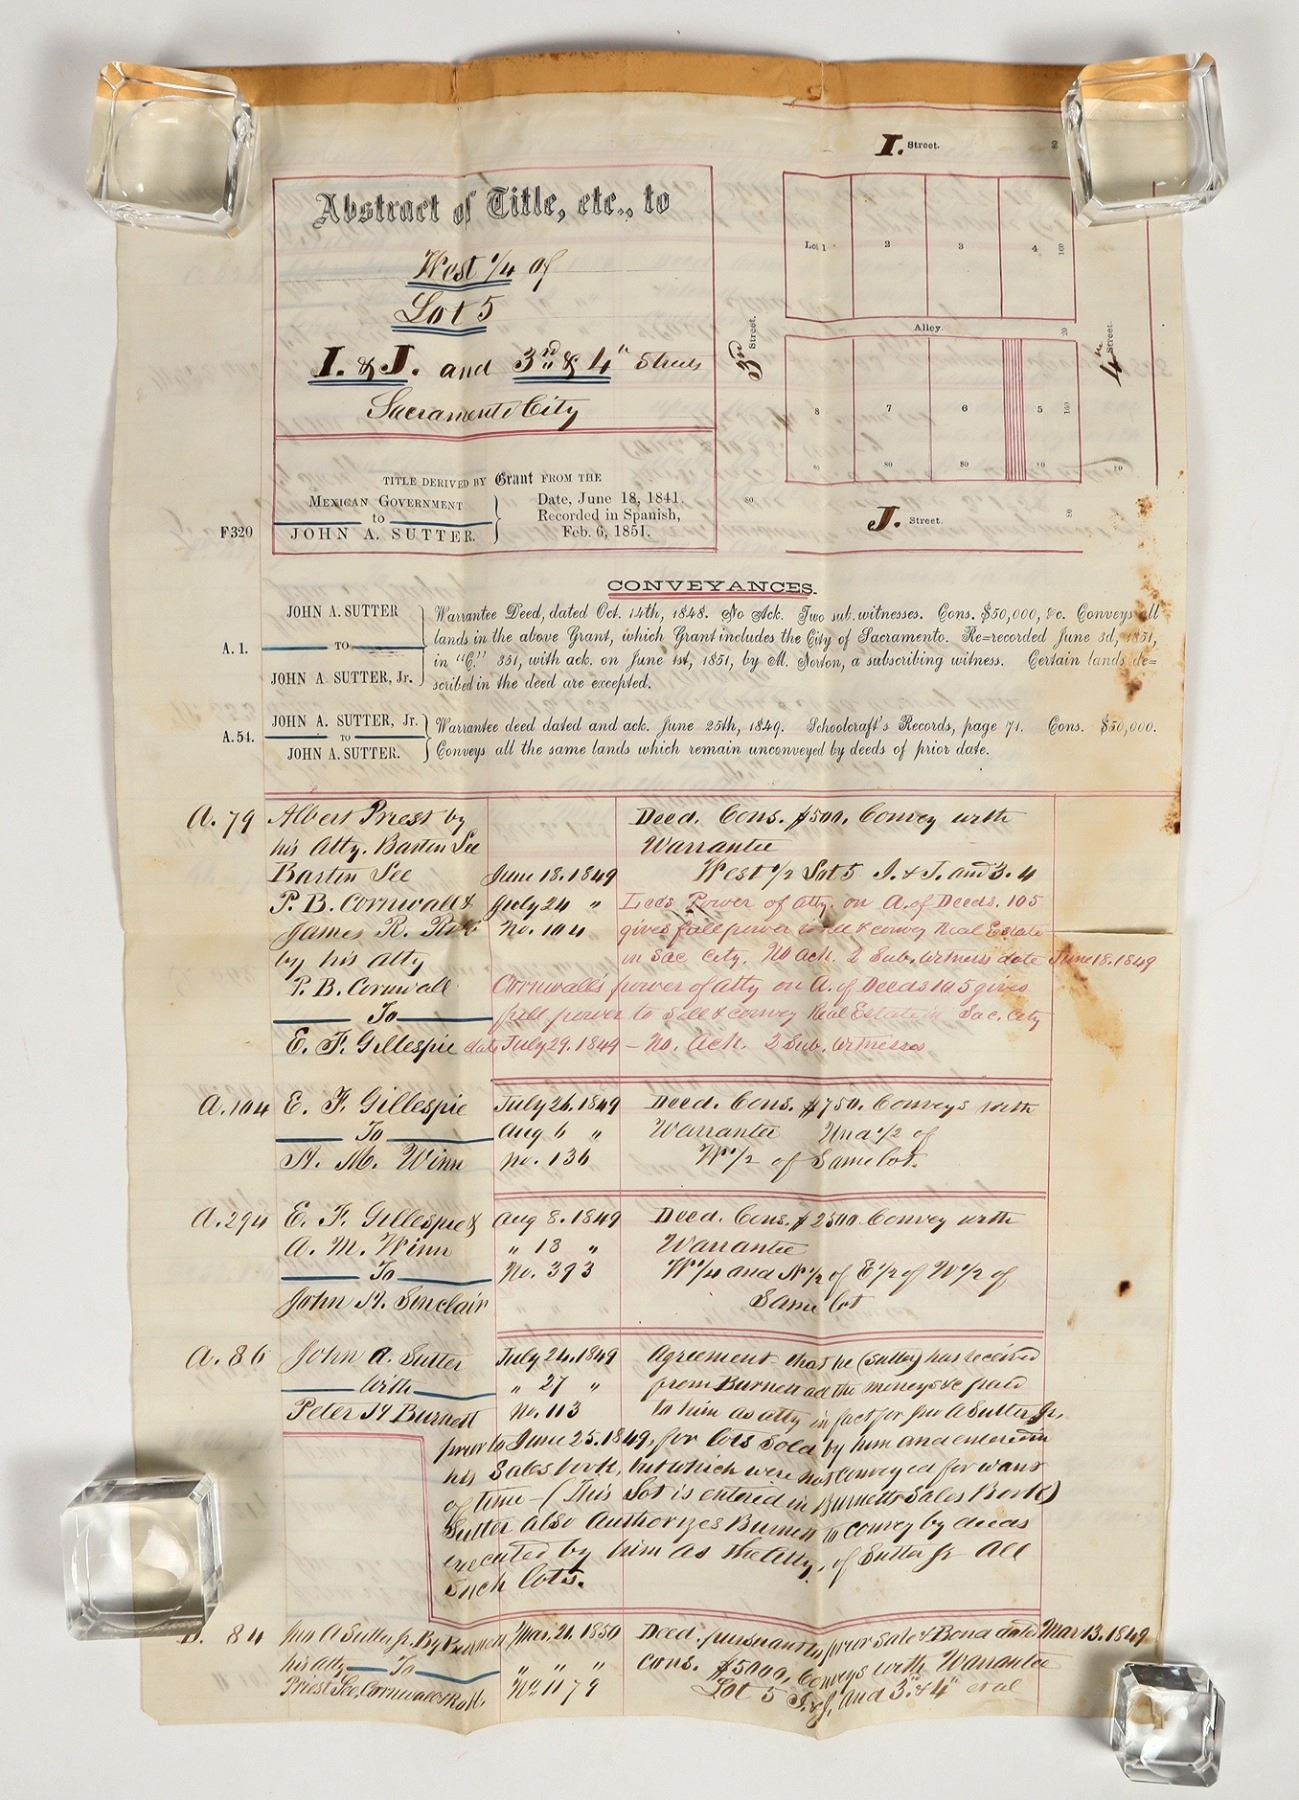 I. Street.
Abstract of Title, etc., to
West 1/4 of
Lot 5
I. & J. and 3rd & 4th Streets
Sacramento City
Lot 1 2 3 4 160
3rd Street.
Alley. 20
4th Street.
8 7 6 5 160
80 80 80
80.
J. Street. 80
TITLE DERIVED BY Grant FROM THE
MEXICAN GOVERNMENT
to
JOHN A. SUTTER.
Date, June 18, 1841.
Recorded in Spanish,
Feb. 6, 1851.
F320
CONVEYANCES.
A. 1.
JOHN A. SUTTER
TO
JOHN A. SUTTER, Jr.
Warrantee Deed, dated Oct. 14th, 1848. No Ack. Two sub. witnesses. Cons. $50,000, &c. Conveys all
lands in the above Grant, which Grant includes the City of Sacramento. Re=recorded June 3d, 1851,
in "C." 351, with ack. on June 1st, 1851, by M. Norton, a subscribing witness. Certain lands de=
scribed in the deed are excepted.
A. 51.
JOHN A. SUTTER, Jr.
TO
JOHN A. SUTTER.
Warrantee deed dated and ack. June 25th, 1849. Schoolcraft's Records, page 71. Cons. $50,000.
Conveys all the same lands which remain unconveyed by deeds of prior date.
A. 79 Albert Priest by Deed. Cons. $500. Convey with
his Atty. Barton Lee Warrantee
Barton Lee June 18. 1849 West 1/2 Lot 5 I. & J. and 3. 4
P. B. Cornwall & July 24 " Lee's Power of atty. on A. of Deeds. 105
James R. No. 104 gives full power to sell & convey Real Estate
by his atty in Sac City. No Ack. 2 Sub. Witness date June 18. 1849
P. B. Cornwall Cornwall's power of atty on A. of Deeds 105 gives
To full power to sell & convey Real Estate in Sac. City
E. F. Gillespie date July 29. 1849 – No. Ack. 2 Sub. Witnesses
A. 104 E. F. Gillespie July 26. 1849 Deed. Cons. $750. Conveys with
To Aug 6 " Warrantee Und 1/2 of
A. M. Winn No. 136 W 1/2 of Same lot.
A. 294 E. F. Gillespie & Aug 8. 1849 Deed. Cons. $2500. Convey with
A. M. Winn " 13 " Warrantee
To No. 393 W 1/4 and N 1/2 of E 1/2 of W 1/2 of
John H. Sinclair Same lot
A. 86 John A. Sutter July 24. 1849 Agreement – that he (Sutter) has received
With " 27 " from Burnett all the moneys &c paid
Peter H Burnett No. 113 to him as atty in fact for Jno A Sutter Jr,
prior to June 25. 1849, for lots sold by him and entered in
his Sales book, but which were not conveyed for want
of time – (This Lot is entered in Burnett's Sales Book)
Sutter also Authorizes Burnett to convey by deeds
executed by him as the Atty, of Sutter Jr All
Such lots.
84 Jno A Sutter Jr. By Burnett Mar. 21. 1850 Deed. pursuant to prior sale & Bond dated Mar 13. 1849
his atty To " " " cons. $5000, Conveys with Warrantee
Priest Lee, Cornwall & No. 1179 Lot 5 I. & J. and 3rd & 4th et al